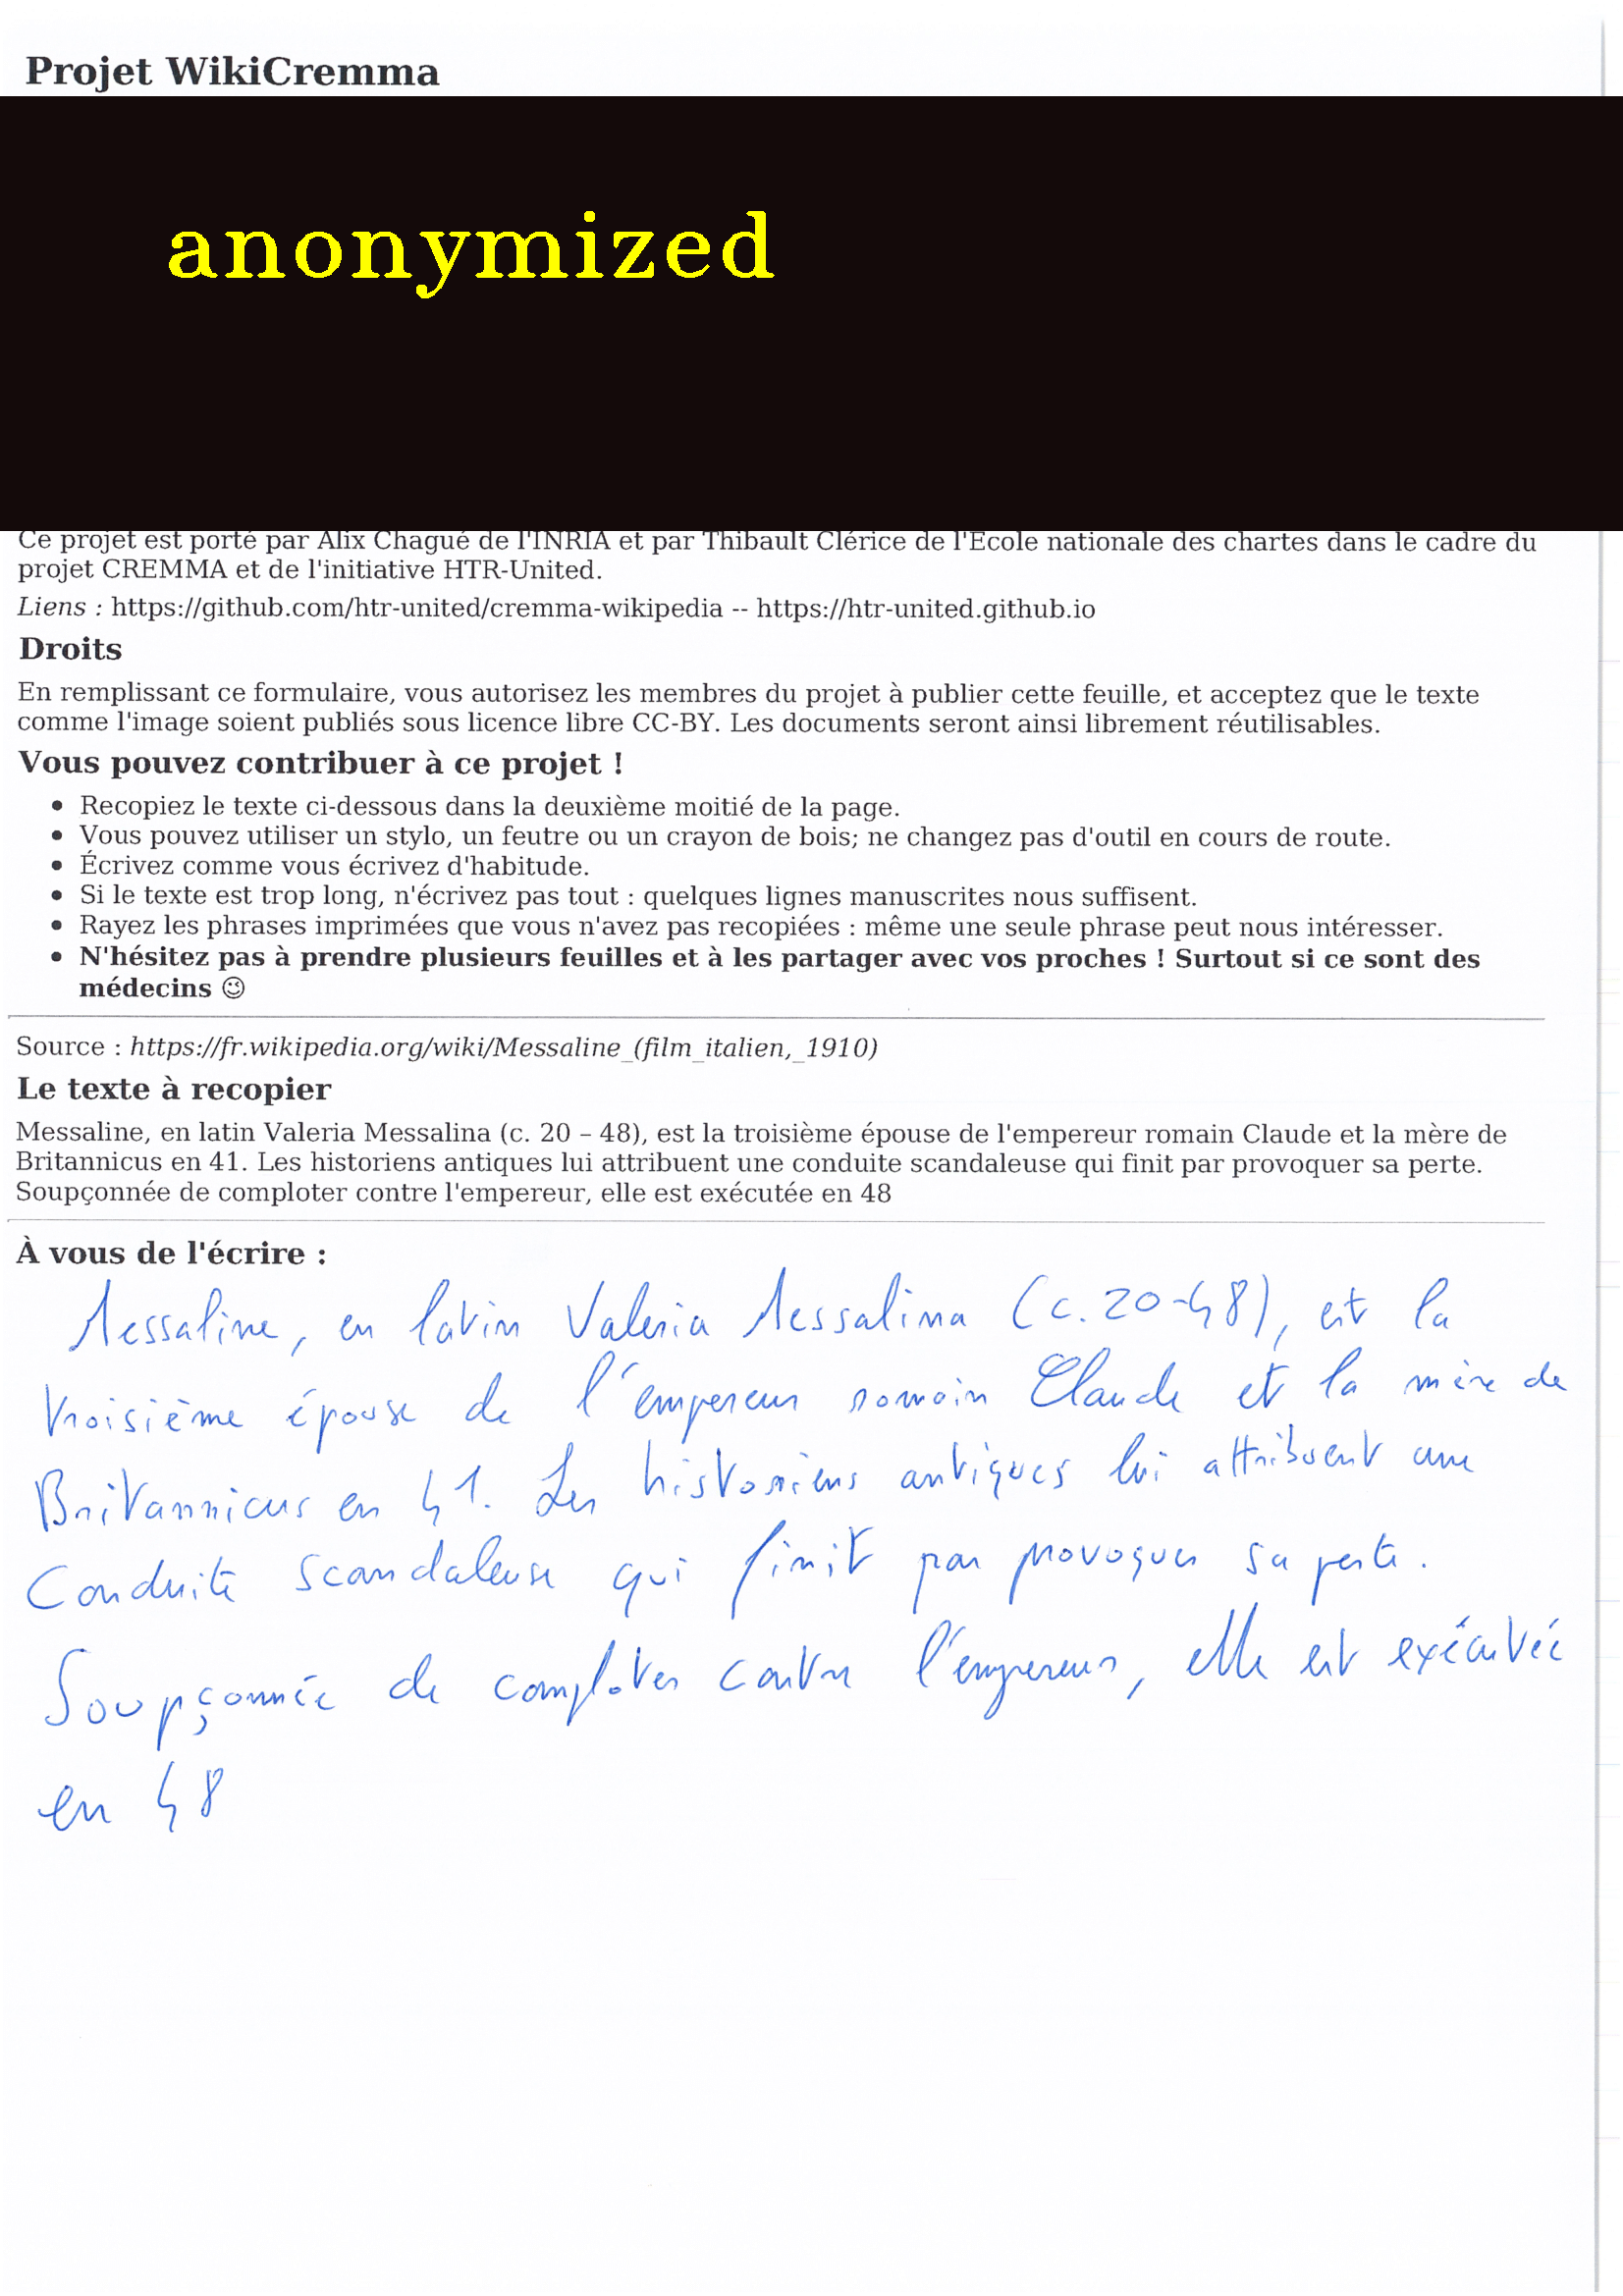 Projet WikiCremma
anonymized
Ce projet est porté par Alix Chagué de l'INRIA et par Thibault Clérice de l'École nationale des chartes dans le cadre du
projet CREMMA et de l'initiative HTR-United.
Liens : https://github.com/htr-united/cremma-wikipedia -- https://htr-united.github.io
Droits
En remplissant ce formulaire, vous autorisez les membres du projet à publier cette feuille, et acceptez que le texte
comme l'image soient publiés sous licence libre CC-BY. Les documents seront ainsi librement réutilisables.
Vous pouvez contribuer à ce projet !
• Recopiez le texte ci-dessous dans la deuxième moitié de la page.
• Vous pouvez utiliser un stylo, un feutre ou un crayon de bois; ne changez pas d'outil en cours de route.
• Écrivez comme vous écrivez d'habitude.
• Si le texte est trop long, n'écrivez pas tout : quelques lignes manuscrites nous suffisent.
• Rayez les phrases imprimées que vous n'avez pas recopiées : même une seule phrase peut nous intéresser.
• N'hésitez pas à prendre plusieurs feuilles et à les partager avec vos proches ! Surtout si ce sont des
médecins ☺
Source : https://fr.wikipedia.org/wiki/Messaline_(film_italien,_1910)
Le texte à recopier
Messaline, en latin Valeria Messalina (c. 20 – 48), est la troisième épouse de l'empereur romain Claude et la mère de
Britannicus en 41. Les historiens antiques lui attribuent une conduite scandaleuse qui finit par provoquer sa perte.
Soupçonnée de comploter contre l'empereur, elle est exécutée en 48
À vous de l'écrire :
Messaline, en latin Valeria Messalina (c. 20-48), est la
troisième épouse de l'empereur romain Claude et la mère de
Britannicus en 41. Les historiens antiques lui attribuent une
conduite scandaleuse qui finit par provoquer sa perte.
Soupçonnée de comploter contre l'empereur, elle est exécutée
en 48